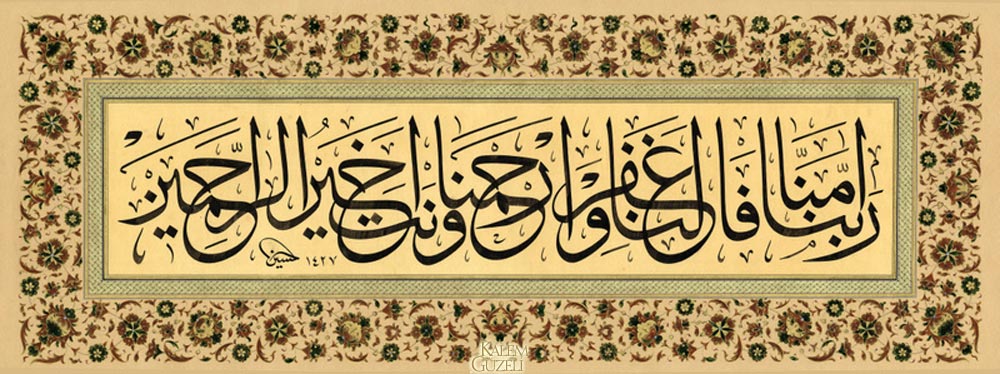 ربنا امنا فاغفر لنا وارحمنا وانت خير الراحمين
حسين ١٤٢٧
KALEM GÜZELİ